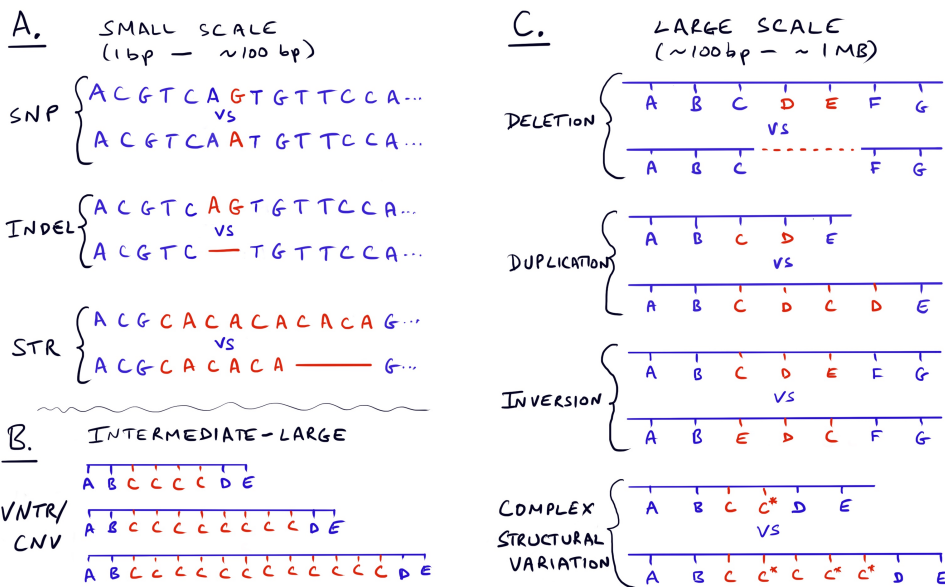 A.
SMALL SCALE
(1bp — ~100bp)
SNP
A C G T C A G T G T T C C A...
VS
A C G T C A A T G T T C C A...
INDEL
A C G T C A G T G T T C C A...
VS
A C G T C — T G T T C C A...
STR
A C G C A C A C A C A C A G...
VS
A C G C A C A C A — G...
B.
INTERMEDIATE-LARGE
VNTR/
CNV
A B C C C C D E
A B C C C C C C C C D E
A B C C C C C C C C C C C C D E
C.
LARGE SCALE
(~100bp - ~1MB)
DELETION
A B C D E F G
VS
A B C F G
DUPLICATION
A B C D E
VS
A B C D C D E
INVERSION
A B C D E F G
VS
A B E D C F G
COMPLEX
STRUCTURAL
VARIATION
A B C C* D E
VS
A B C C* C C* C* D E